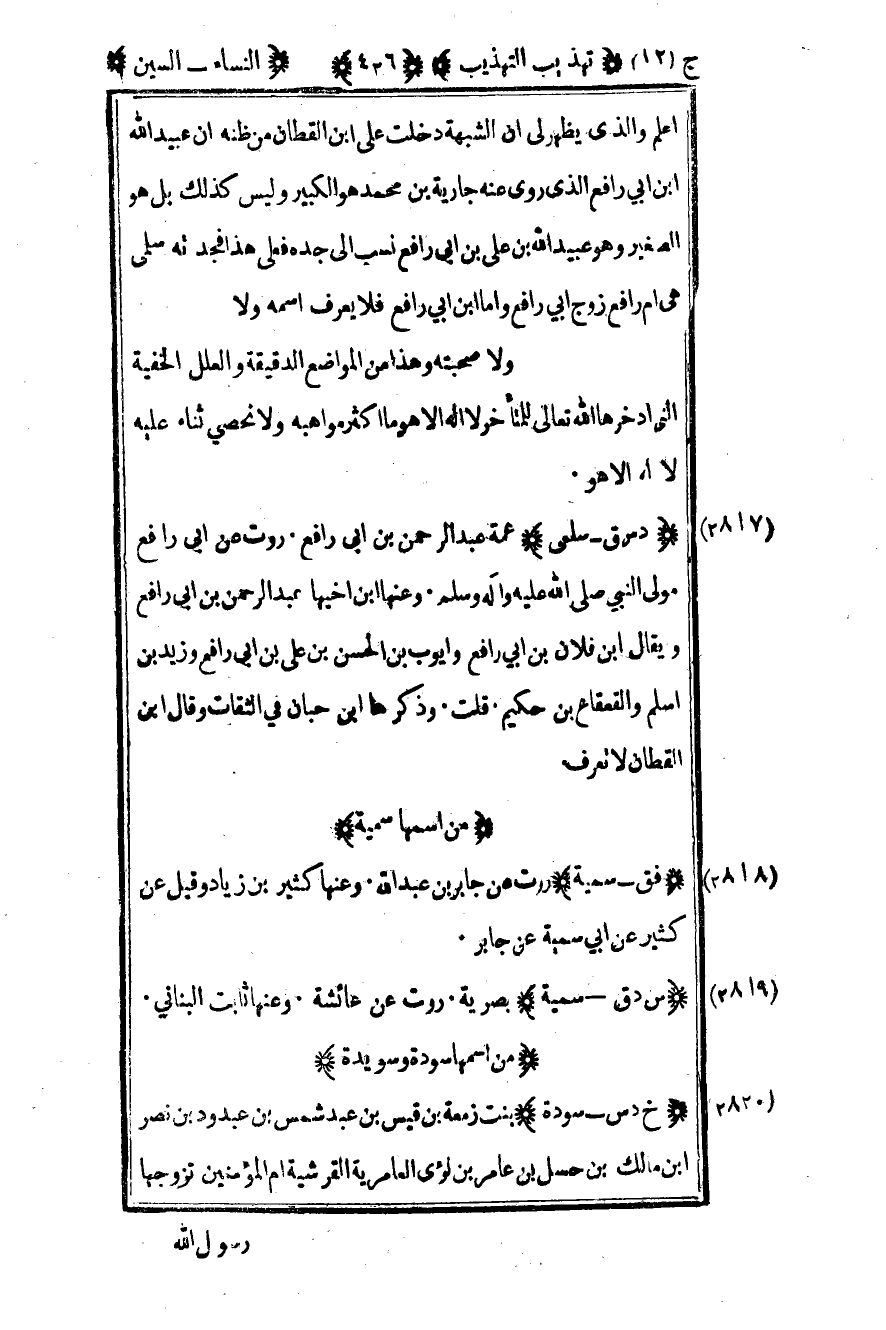 ج (١٢) ﴿ تهذيب التهذيب ﴾ ﴿ ٤٢٦ ﴾ ﴿ النساء ـ السين ﴾
اعلم والذى يظهر لى ان الشبهة دخلت على ابن القطان من ظنه ان عبيد الله
ابن ابي رافع الذى روى عنه جارية بن محمد هو الكبير وليس كذلك بل هو
الصغير وهو عبيد الله بن على بن ابى رافع نسب الى جده فعلى هذا فجد ته سلمى
هى ام رافع زوج ابي رافع واما ابن ابي رافع فلا يعرف اسمه ولا
ولا صحبته وهذا من المواضع الدقيقة والعلل الخفية
التى ادخرها الله تعالى للمتأ خر لا اله الا هو ما اكثر مواهبه ولا نحصي ثناء عليه
لا اله الا هو ٠
(٢٨١٧) ﴿ دس ق ـ سلمى ﴾ عمة عبد الرحمن بن ابى رافع ٠ روت عن ابى رافع
مولى النبي صلى الله عليه وآله وسلم ٠ وعنها ابن اخيها عبد الرحمن بن ابى رافع
ويقال ابن فلان بن ابي رافع وايوب بن الحسن بن على بن ابى رافع وزيد بن
اسلم والقعقاع بن حكيم ٠ قلت ٠ وذكرها ابن حبان في الثقات وقال ابن
القطان لا تعرف ٠
﴿ من اسمها سمية ﴾
(٢٨١٨) ﴿ فق ـ سمية ﴾ روت عن جابر بن عبد الله ٠ وعنها كثير بن زياد وقيل عن
كثير عن ابي سمية عن جابر ٠
(٢٨١٩) ﴿ س دق ـ سمية ﴾ بصرية ٠ روت عن عائشة ٠ وعنها ثابت البناني ٠
﴿ من اسمها سودة وسويدة ﴾
(٢٨٢٠) ﴿ خ دس ـ سودة ﴾ بنت زمعة بن قيس بن عبد شمس بن عبدود بن نصر
ابن مالك بن حسل بن عامر بن لؤى العامرية القرشية ام المؤمنين تزوجها
رسول الله